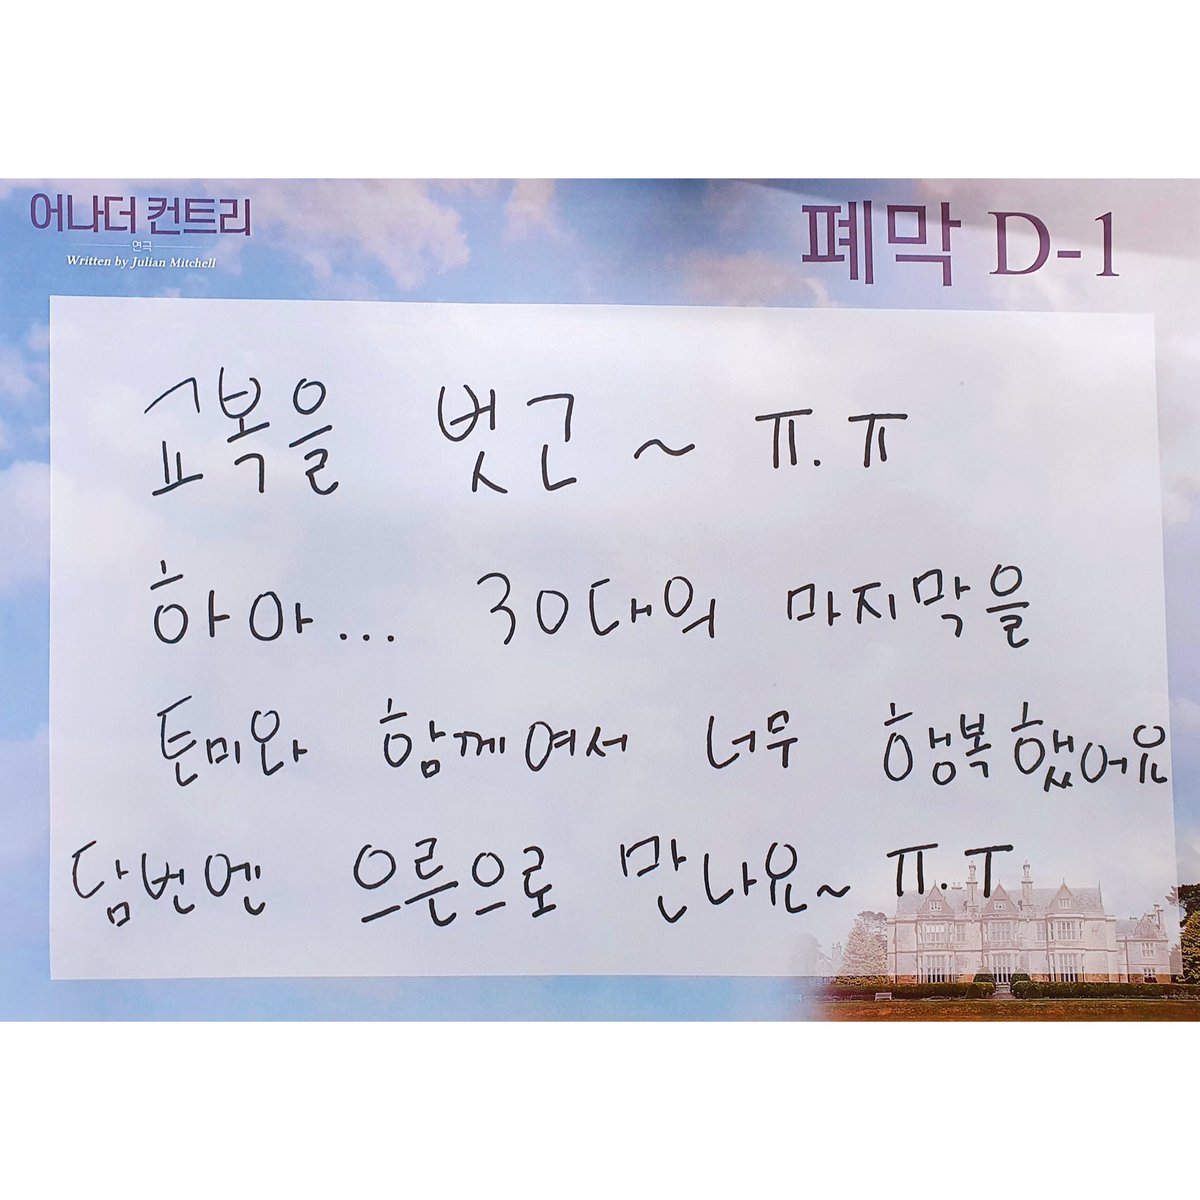 어나더 컨트리
연극
Written by Julian Mitchell
폐막 D-1
교복을 벗고~ ㅠ.ㅠ
하아... 30대의 마지막을
토미와 함께여서 너무 행복했어요
담번엔 으른으로 만나요~ ㅠ.ㅜ